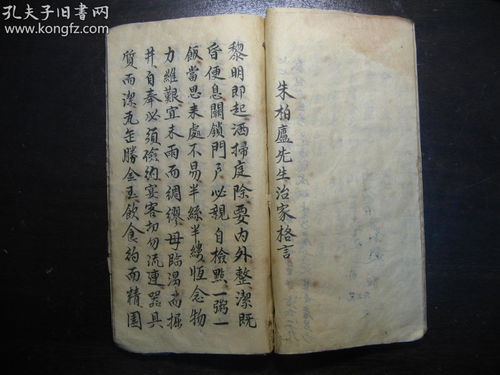 孔夫子旧書网
www.kongfz.com
朱柏廬先生治家格言
黎明即起洒掃庭除要内外整潔既
昏便息關鎖門戶必親自檢點一粥一
飯當思来處不易半絲半縷恆念物
力維艱宜未雨而綢繆毋臨渴而掘
井自奉必須儉約宴客切勿流連器具
質而潔瓦缶勝金玉飲食約而精園